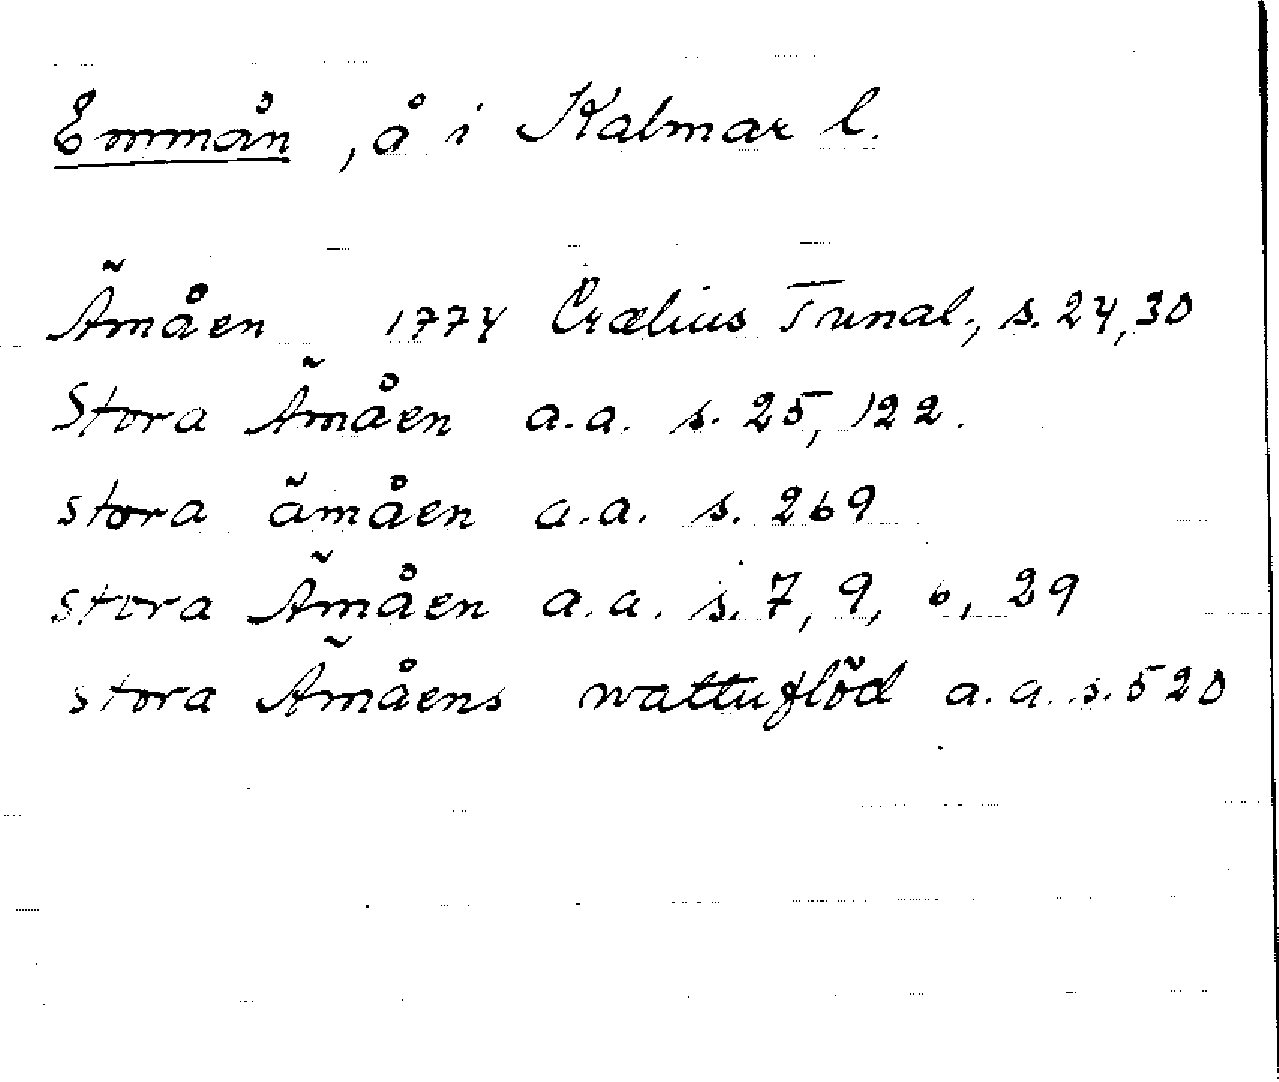 Emmån, å i Kalmar l.
Ãmåen 1774 Crælius Tunal., s. 24, 30
Stora Ãmåen a.a. s. 25, 122.
stora ãmåen a.a. s. 269
stora Ãmåen a.a. s. 7, 9, 6, 29
stora Ãmåens wattuflõd a.a. s. 520